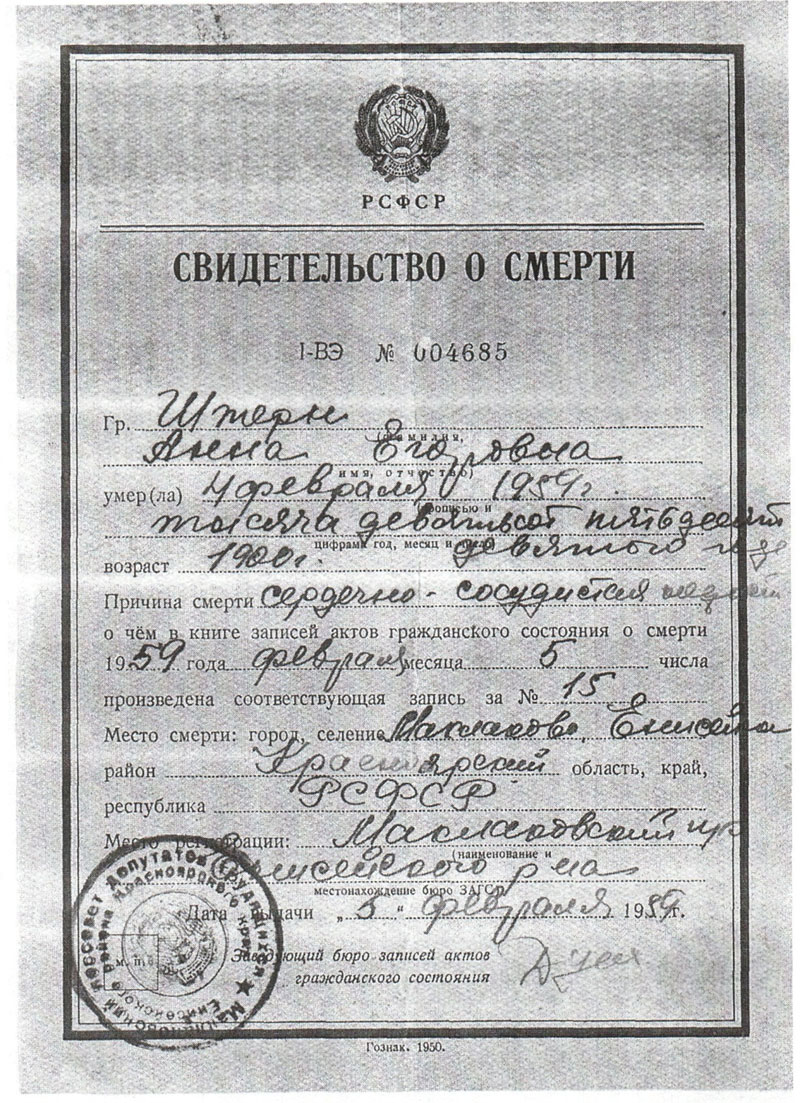 РСФСР
СВИДЕТЕЛЬСТВО О СМЕРТИ
I-ВЭ № 004685
Гр. Штерн
(фамилия,
Анна Егоровна
имя, отчество)
умер(ла) 4 февраля 1959 г.
(прописью и
тысяча девятьсот пятьдесят
цифрами год, месяц и число)
девятого года
возраст 1900 г.
Причина смерти сердечно-сосудистая
о чём в книге записей актов гражданского состояния о смерти
1959 года февраля месяца 5 числа
произведена соответствующая запись за № 15
Место смерти: город, селение Маклаково, Енисейск
район Красноярский область, край,
республика РСФСР
Место регистрации: Маклаковский
(наименование и
Енисейского р-на
местонахождение бюро ЗАГСа)
Дата выдачи „5“ февраля 1959 г.
М. п.
Заведующий бюро записей актов
гражданского состояния
Маклаковский поссовет депутатов трудящихся
Енисейского района Красноярского края
Гознак. 1950.